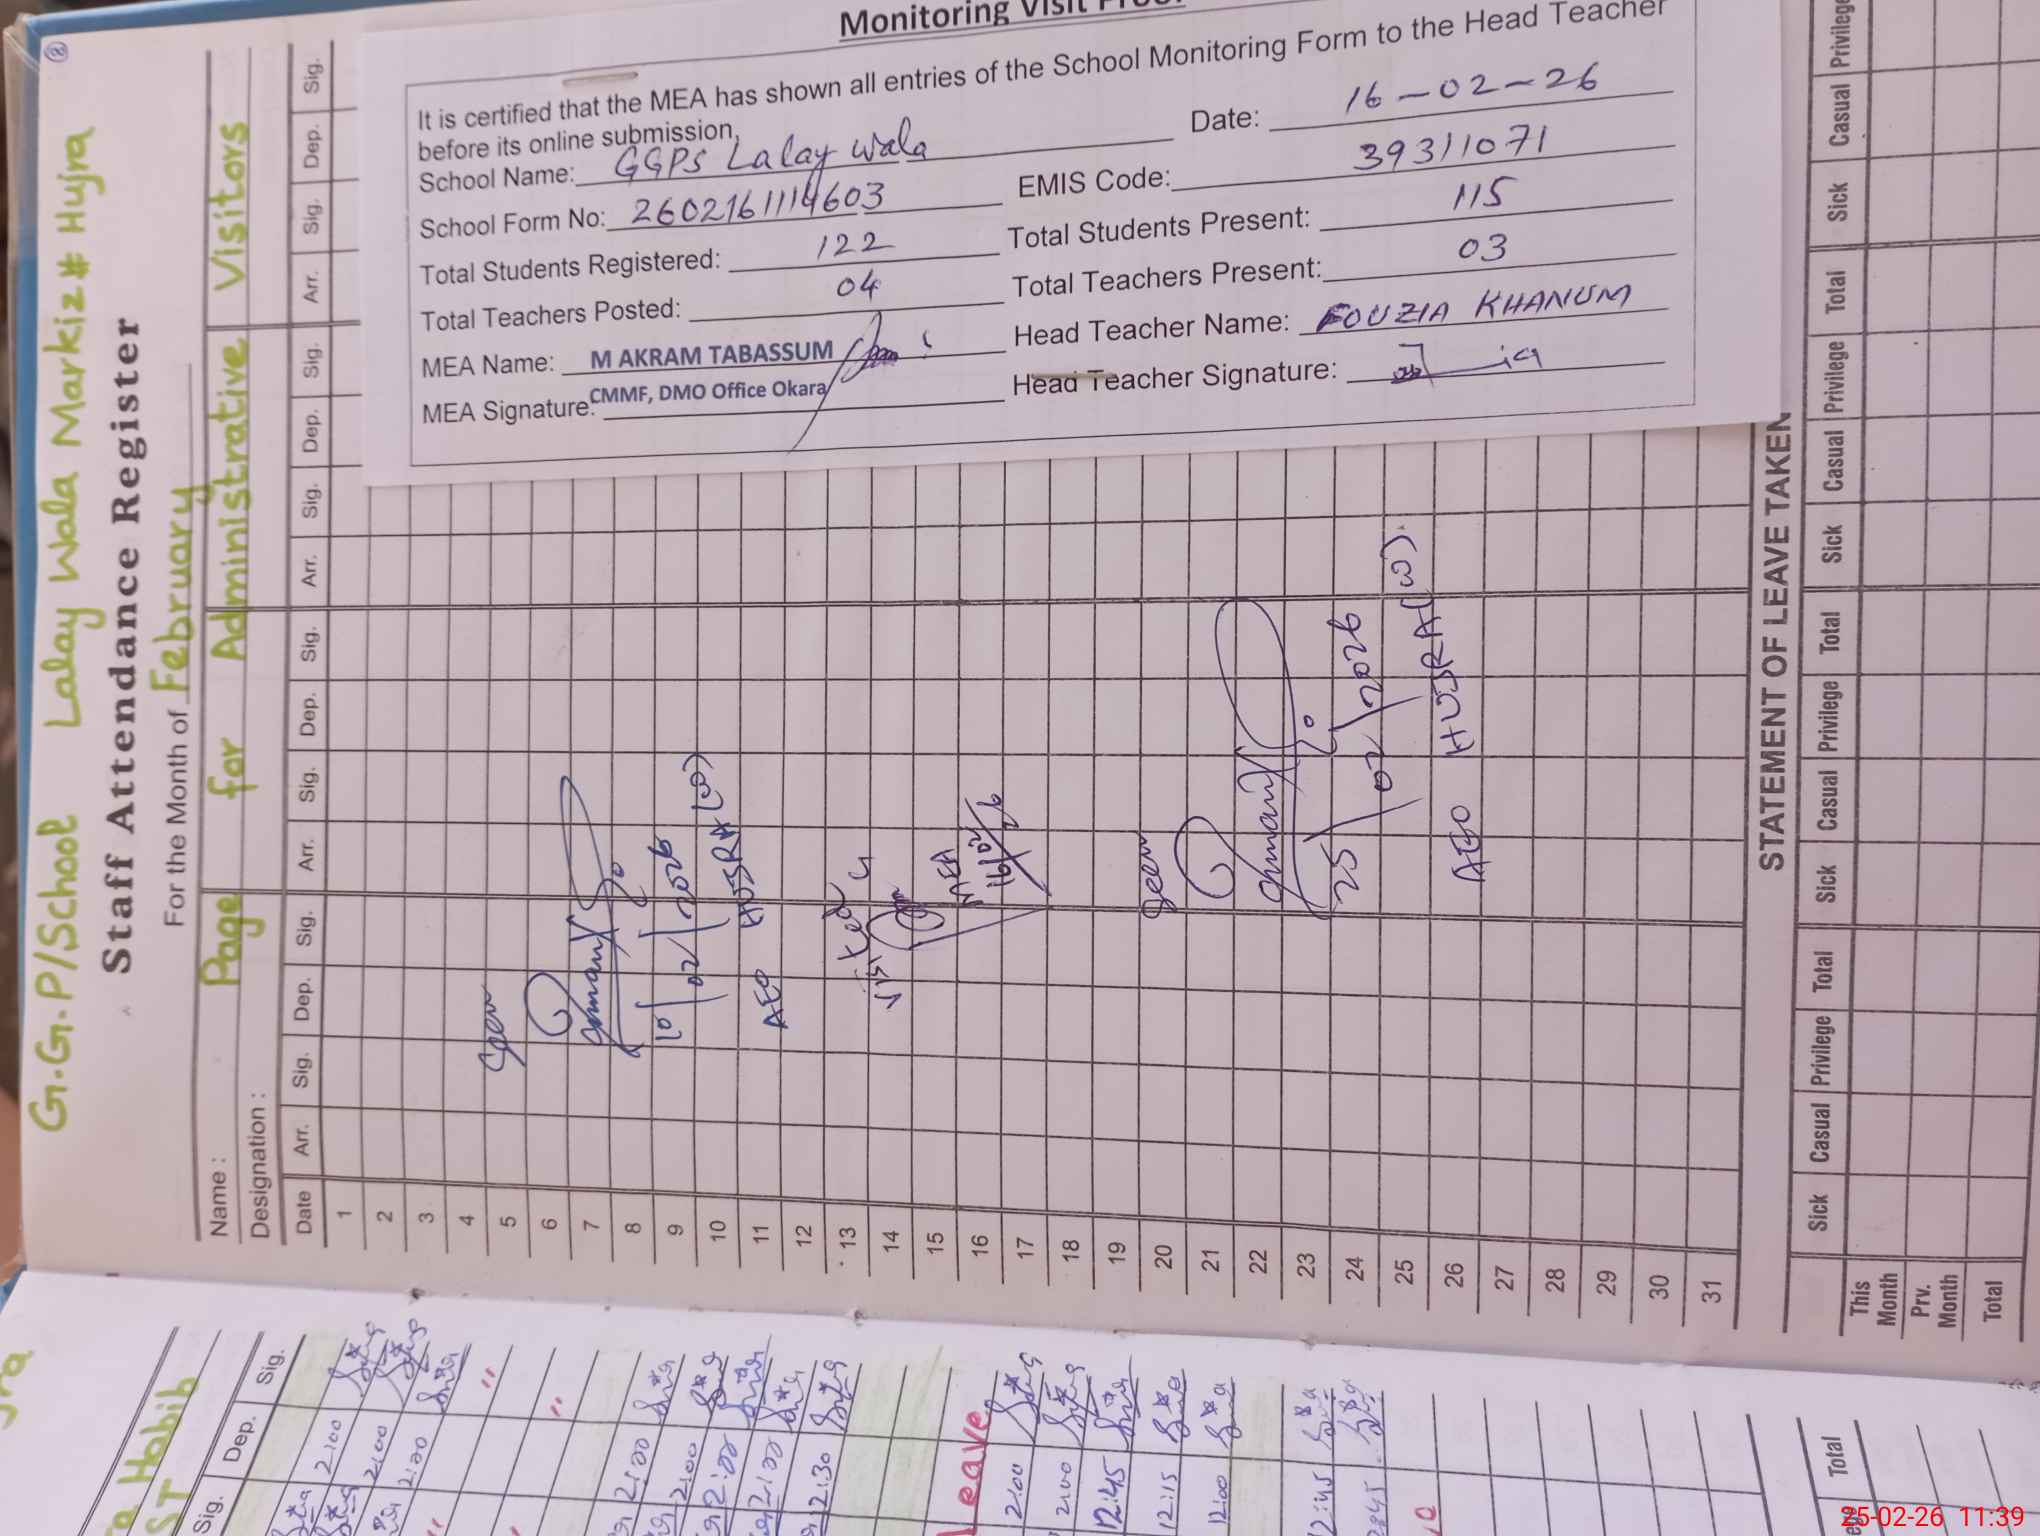 Monitoring Visit Proof
It is certified that the MEA has shown all entries of the School Monitoring Form to the Head Teacher
before its online submission,
School Name: GGPS Lalay Wala Date: 16-02-26
School Form No: 2602161114603 EMIS Code: 39311071
Total Students Registered: 122 Total Students Present: 115
Total Teachers Posted: 04 Total Teachers Present: 03
MEA Name: M AKRAM TABASSUM Head Teacher Name: FOUZIA KHANUM
MEA Signature: CMMF, DMO Office Okara Head Teacher Signature:
G.G.P/School Lalay Wala Markiz # Hujra
Staff Attendance Register
For the Month of February
Name: Page for Administrative Visitors
Designation:
Date Arr. Sig. Dep. Sig. Arr. Sig. Dep. Sig. Arr. Sig. Dep. Sig. Arr. Sig. Dep. Sig.
1
2
3
4
5
6
7
8
9
10
11
12
13
14
15
16
17
18
19
20
21
22
23
24
25
26
27
28
29
30
31
Seen
10/02/2026
AEO HUJRA (W)
Visited
MEA
16/02/26
Seen
25/02/2026
AEO HUJRA (W).
STATEMENT OF LEAVE TAKEN
Sick Casual Privilege Total Sick Casual Privilege Total Sick Casual Privilege Total Sick Casual Privilege
This Month
Prv. Month
Total
Habib
ST
Sig. Dep. Sig.
2:00
2:00
2:00
2:00
2:00
2:00
2:00
2:30
Leave
2:00
2:00
12:45
12:15
12:00
12:45
Total
25-02-26 11:39